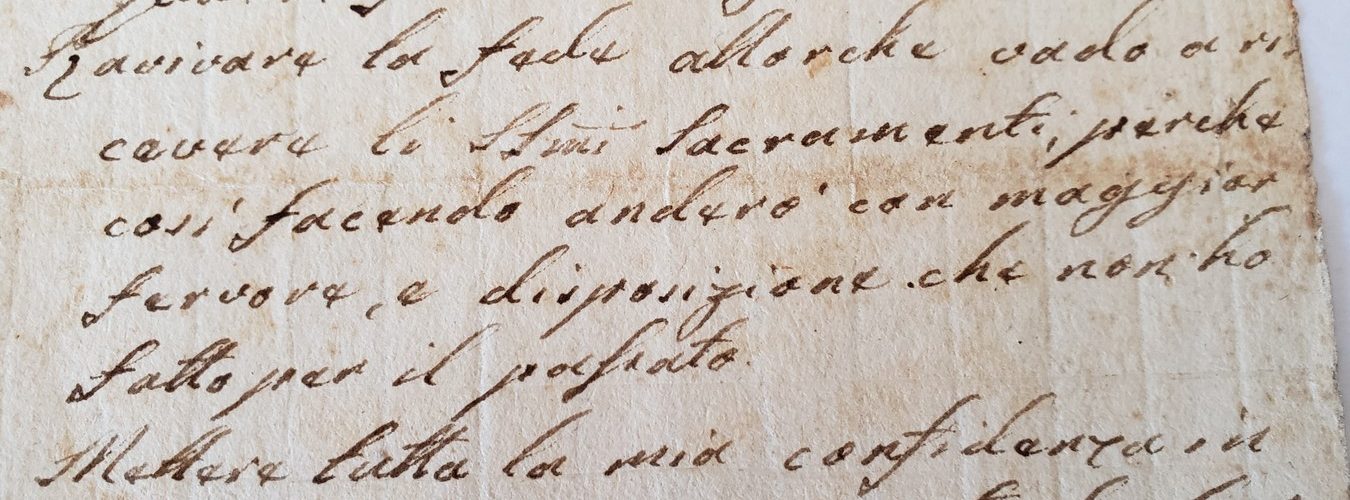 Ravivare la fede allorche vado a ri
cevere li SSmi Sacramenti, perche
cosi' facendo andero' con maggior
fervore, e disposizione che non ho
fatto per il passato.
Mettere tutta la mia confidenza in